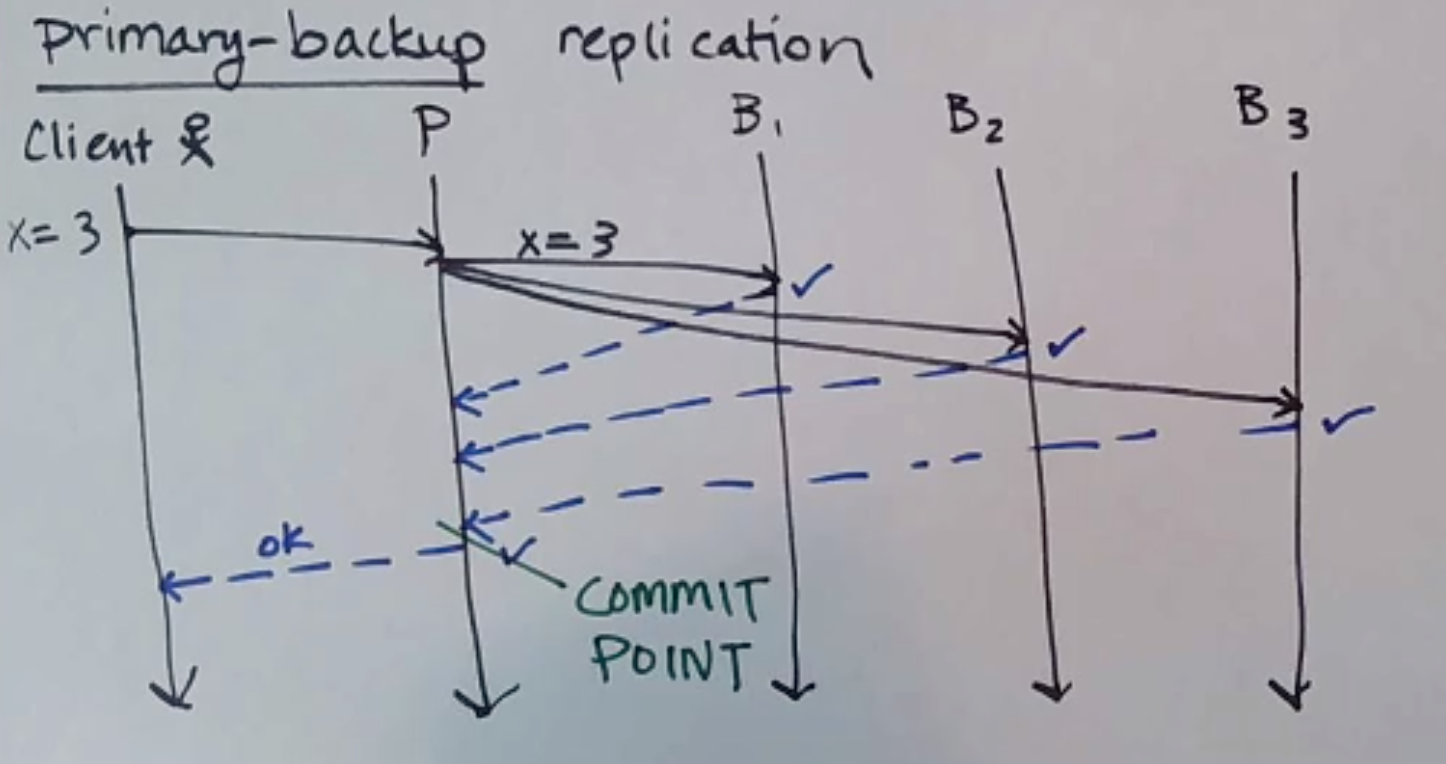 primary-backup replication
Client P B₁ B₂ B₃
x=3 x=3
ok
COMMIT
POINT